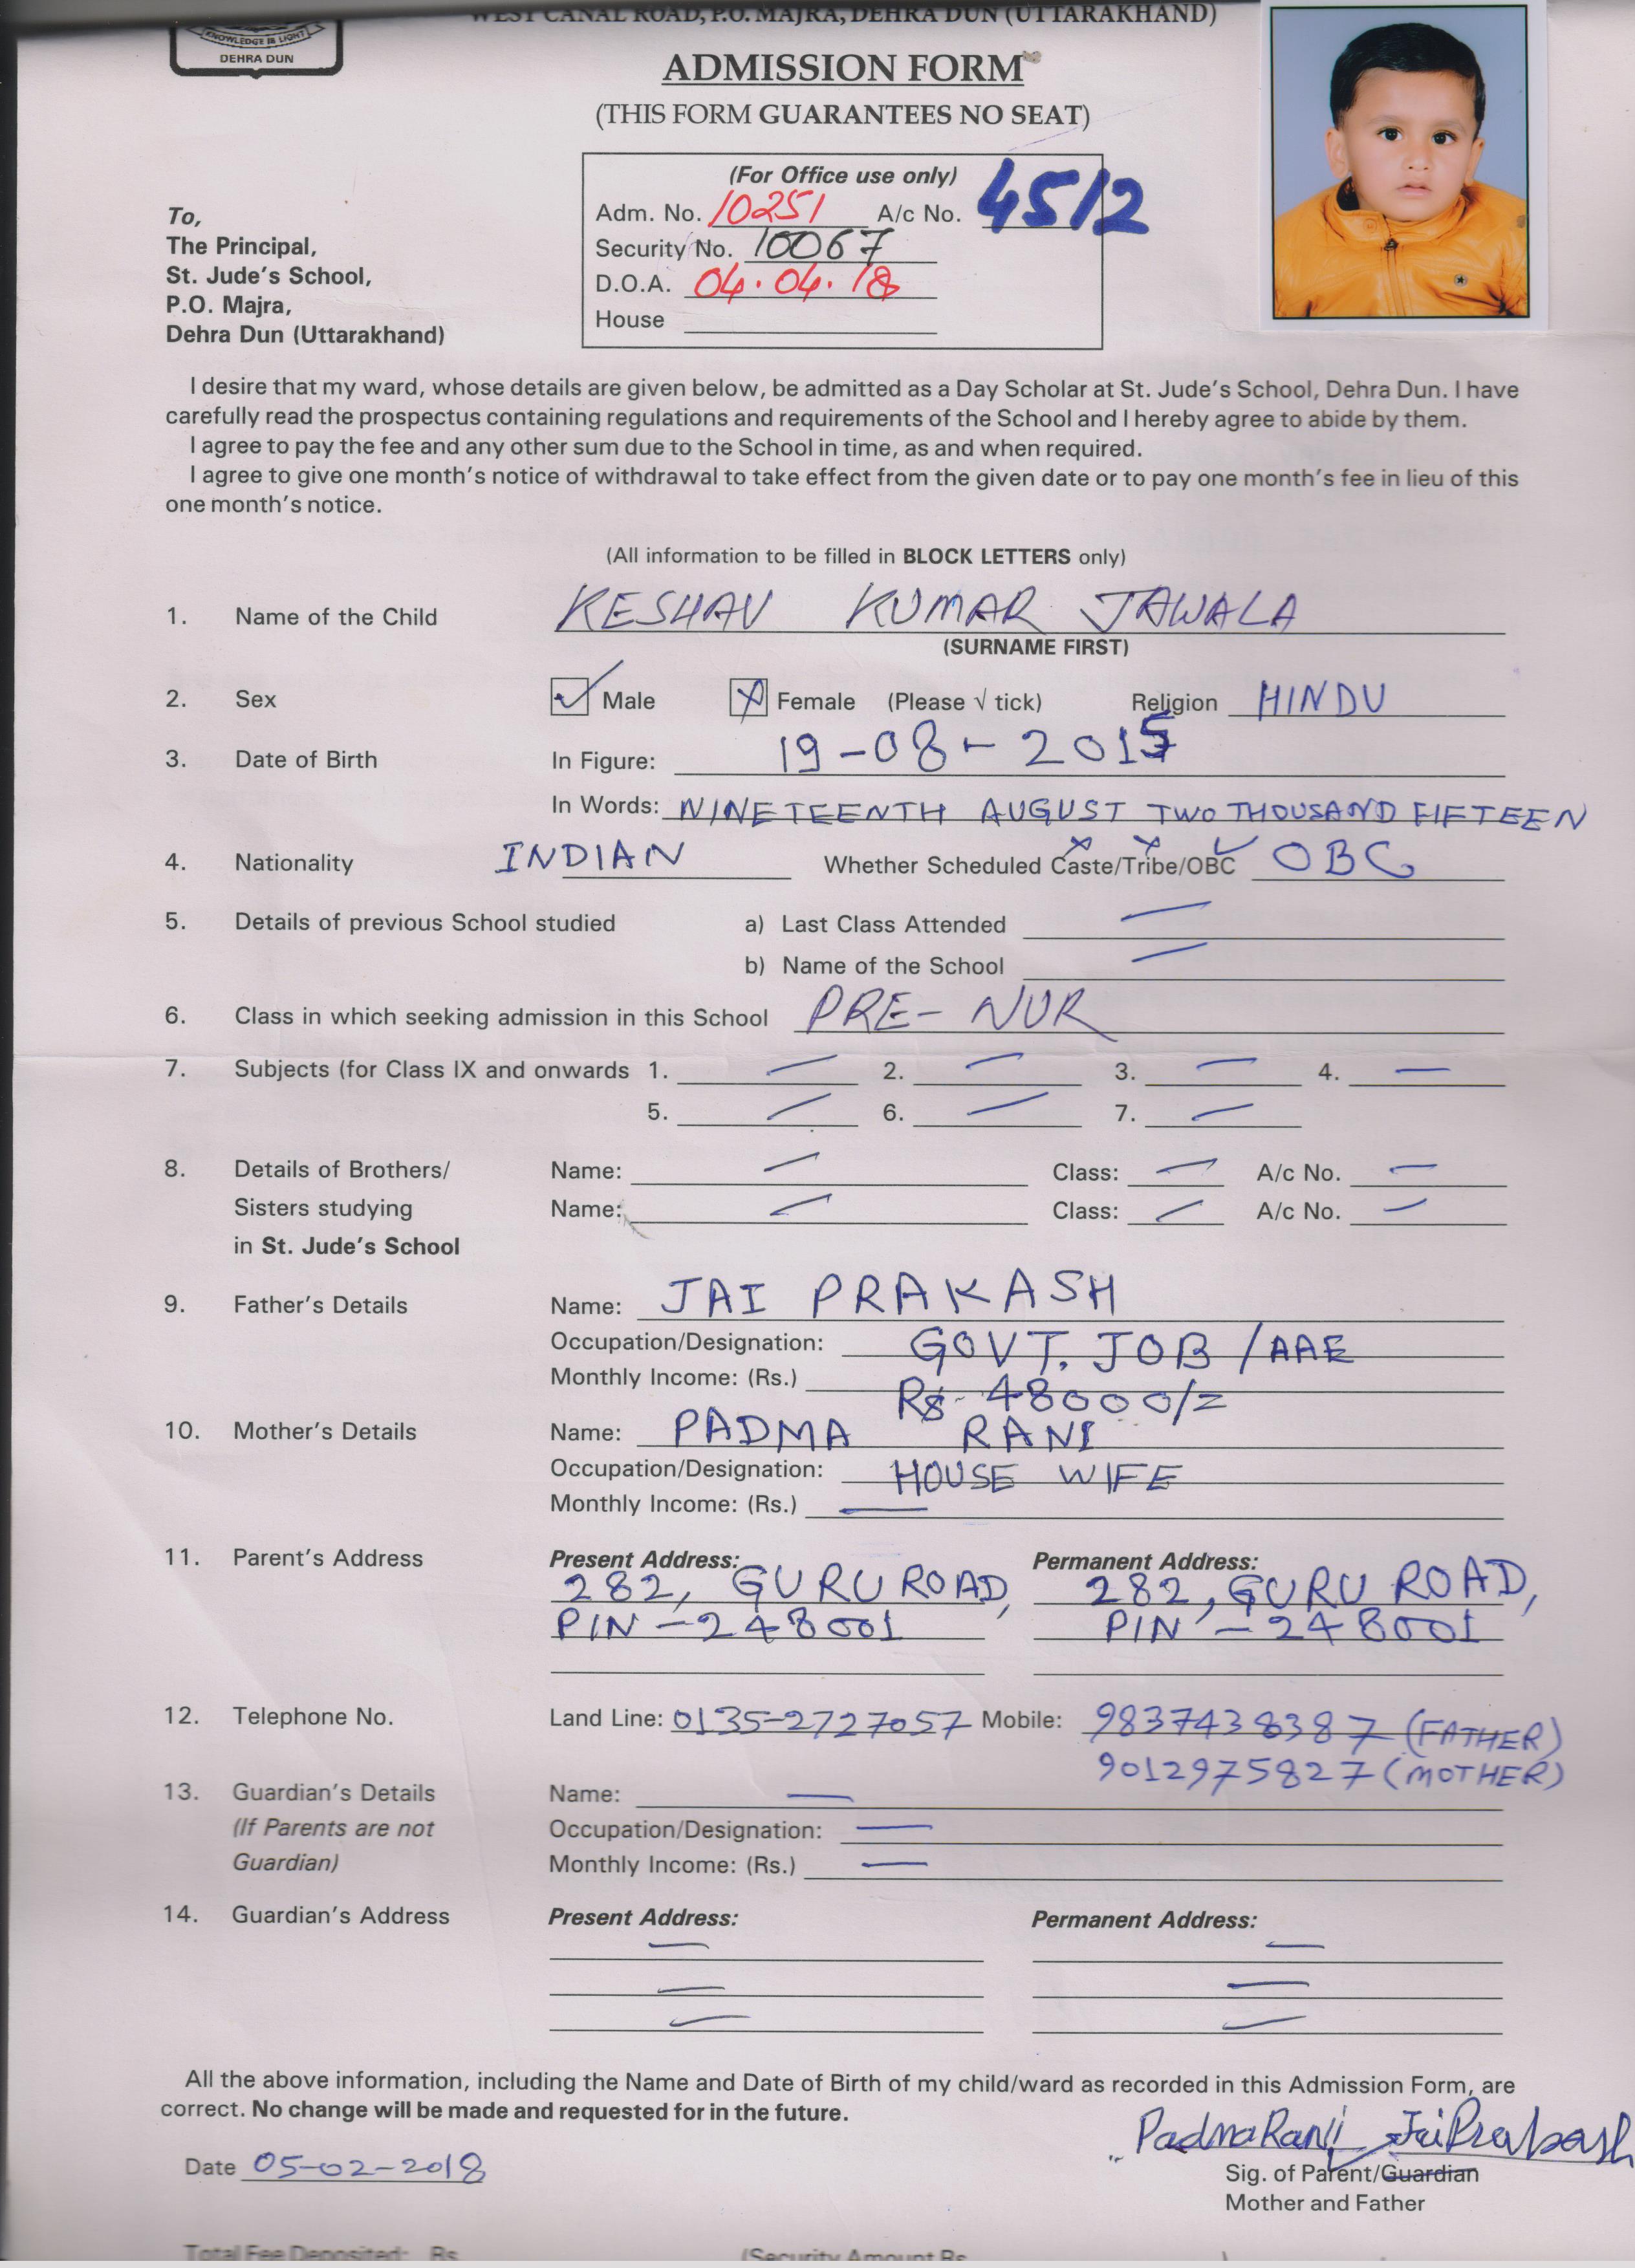 WEST CANAL ROAD, P.O. MAJRA, DEHRA DUN (UTTARAKHAND)
KNOWLEDGE IS LIGHT
DEHRA DUN
ADMISSION FORM
(THIS FORM GUARANTEES NO SEAT)
(For Office use only)
Adm. No. 10251 A/c No. 4512
Security No. 10067
D.O.A. 04.04.18
House
To,
The Principal,
St. Jude's School,
P.O. Majra,
Dehra Dun (Uttarakhand)
I desire that my ward, whose details are given below, be admitted as a Day Scholar at St. Jude's School, Dehra Dun. I have
carefully read the prospectus containing regulations and requirements of the School and I hereby agree to abide by them.
I agree to pay the fee and any other sum due to the School in time, as and when required.
I agree to give one month's notice of withdrawal to take effect from the given date or to pay one month's fee in lieu of this
one month's notice.
(All information to be filled in BLOCK LETTERS only)
1. Name of the Child KESHAV KUMAR JAWALA
(SURNAME FIRST)
2. Sex Male Female (Please √ tick) Religion HINDU
3. Date of Birth In Figure: 19-08-2015
In Words: NINETEENTH AUGUST TWO THOUSAND FIFTEEN
4. Nationality INDIAN Whether Scheduled Caste/Tribe/OBC OBC
5. Details of previous School studied a) Last Class Attended —
b) Name of the School —
6. Class in which seeking admission in this School PRE-NUR
7. Subjects (for Class IX and onwards 1. — 2. — 3. — 4. —
5. — 6. — 7. —
8. Details of Brothers/ Name: — Class: — A/c No. —
Sisters studying Name: — Class: — A/c No. —
in St. Jude's School
9. Father's Details Name: JAI PRAKASH
Occupation/Designation: GOVT. JOB /AAE
Monthly Income: (Rs.) Rs. 48000/=
10. Mother's Details Name: PADMA RANI
Occupation/Designation: HOUSE WIFE
Monthly Income: (Rs.) —
11. Parent's Address Present Address: Permanent Address:
282, GURU ROAD, 282, GURU ROAD,
PIN-248001 PIN-248001
12. Telephone No. Land Line: 0135-2727057 Mobile: 9837438387 (FATHER)
9012975827 (MOTHER)
13. Guardian's Details Name: —
(If Parents are not Occupation/Designation: —
Guardian) Monthly Income: (Rs.) —
14. Guardian's Address Present Address: Permanent Address:
— —
— —
— —
All the above information, including the Name and Date of Birth of my child/ward as recorded in this Admission Form, are
correct. No change will be made and requested for in the future.
Padma Rani Jai Prakash
Date 05-02-2018
Sig. of Parent/Guardian
Mother and Father
Total Fee Deposited: Rs. (Security Amount Rs.